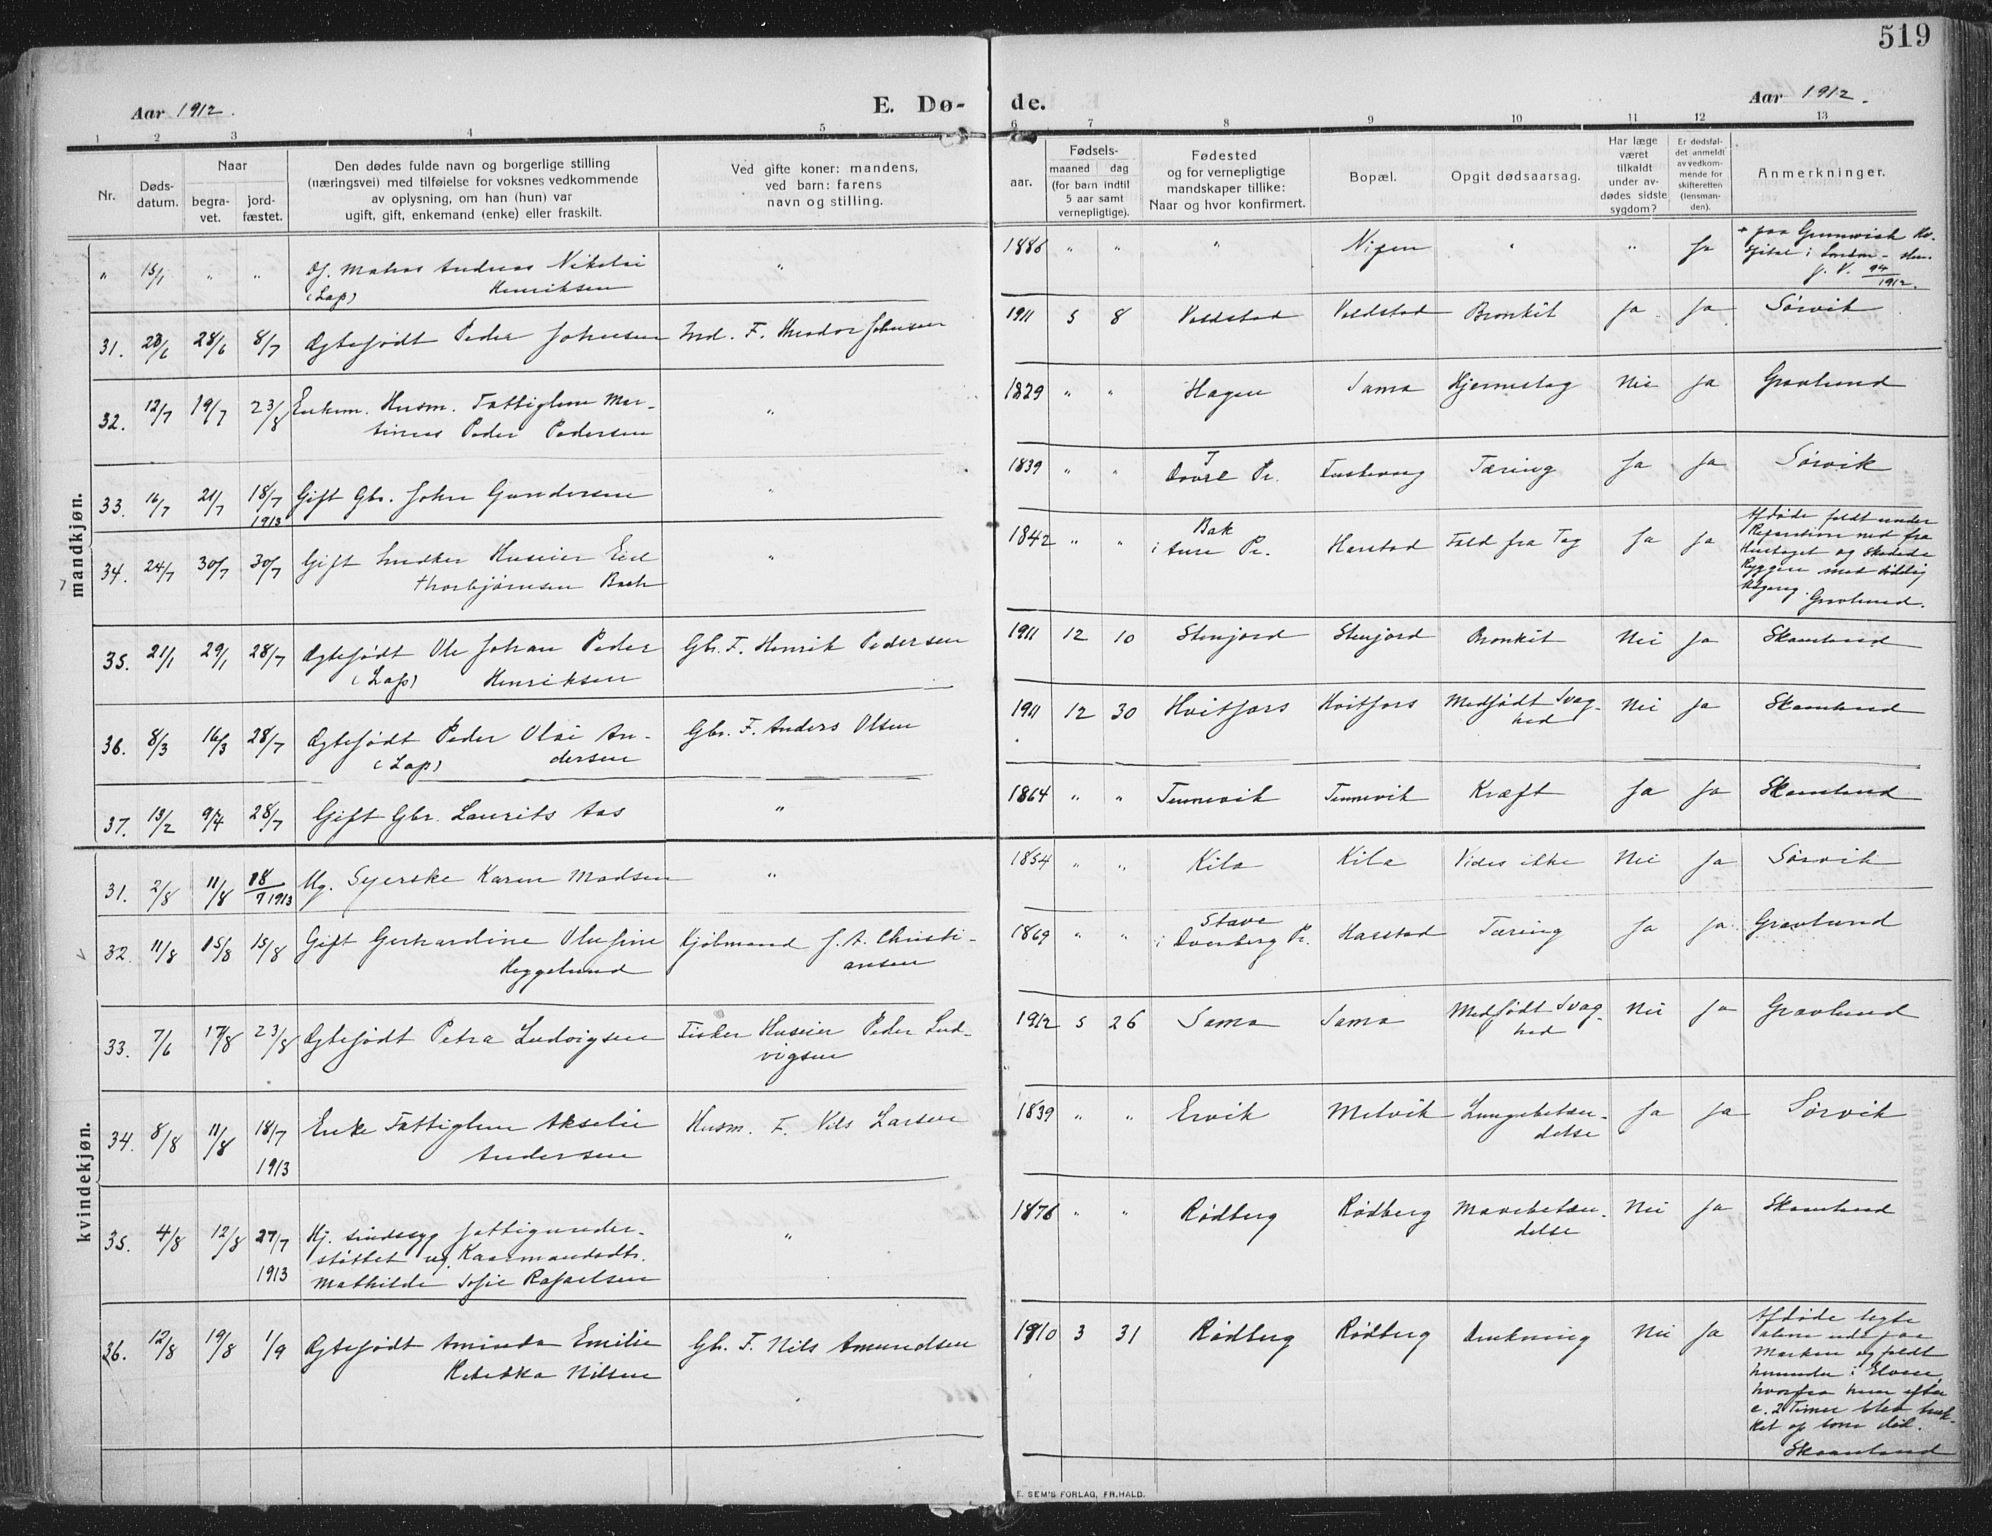 519
Aar 1912.
E. Dø-
de.
Aar 1912.
1 2 3 4 5 6 7 8 9 10 11 12 13
Nr.
Døds-
datum.
Naar
begra-
vet.
jord-
fæstet.
Den dødes fulde navn og borgerlige stilling
(næringsvei) med tilføielse for voksnes vedkommende
av oplysning, om han (hun) var
ugift, gift, enkemand (enke) eller fraskilt.
Ved gifte koner: mandens,
ved barn: farens
navn og stilling.
Fødsels-
aar.
maaned dag
(for barn indtil
5 aar samt
vernepligtige).
Fødested
og for vernepligtige
mandskaper tillike:
Naar og hvor konfirmert.
Bopæl.
Opgit dødsaarsag.
Har læge
været
tilkaldt
under av-
dødes sidste
sygdom?
Er dødsfal-
det anmeldt
av vedkom-
mende for
skifteretten
(lensman-
den).
Anmerkninger.
mandkjøn.
" 15/1 " " Matros Andreas Nikolai " 1886 " " " " " Ja
(Lap) Henriksen
i London
94
1912.
31. 28/6 8/7 Ægtefødt Peder Johnsen Ind. F. Theodor Johnsen 1911 5 8 Voldstad Voldstad Bronkit Ja Ja Sørvik
32. 12/7 19/7 23/8 Enkem. Husm. Fattiglem Mar- " 1829 " " Hagen Sama Hjerneslag Nei Ja Gravlund
tinus Peder Pedersen
33. 16/7 21/7 18/7 Gift Gbr. John Gundersen " 1839 " " Tæring Ja Ja Sørvik
1913
Dovre Pr.
34. 24/7 30/7 30/7 Gift Snedker Huseier Eid " 1842 " " Bak Harstad Fald fra Tag Ja Ja
Thorbjørnsen Bach
i Aure Pr.
Afdøde faldt under
Reparation ned fra
Hustaget og skadede
Ryggen med dødelig
Gravlund.
35. 21/1 29/1 28/7 Ægtefødt Ole Johan Peder Gbr. F. Henrik Pedersen 1911 12 10 Stenjord Stenjord Bronkit Nei Ja Skaanlund
(Lap) Henriksen
36. 8/3 16/3 28/7 Ægtefødt Peder Olai An- Gbr. F. Anders Olsen 1911 12 30 Hvitfors Hvitfors Medfødt Svag- Nei Ja Skaanlund
(Lap) dersen
hed
37. 13/2 9/4 28/7 Gift Gbr. Laurits Aas " 1864 " " Tennevik Tennevik Kræft Ja Ja Skaanlund
kvindekjøn.
31. 2/8 11/8 18/7 1913 Ug. Syerske Karen Madsen " 1854 " " Kila Kila Vides ikke Nei Ja Sørvik
32. 11/8 15/8 15/8 Gift Gerhardine Olufine Kjøbmand J. A. Christi- 1869 " " Stave Harstad Tæring Ja Ja Gravlund
Heggelund ansen
i Pr.
33. 7/6 17/8 23/8 Ægtefødt Petra Ludvigsen Fisker Huseier Peder Lud- 1912 5 26 Sama Sama Medfødt Svag- Nei Ja Gravlund
vigsen
hed
34. 8/8 11/8 18/7 Enke Fattiglem Akselie Husm. F. Nils Larsen 1839 " " Ervik Melvik Lungebetæn- Ja Ja Sørvik
1913 Andersen
delse
35. 4/8 12/8 27/7 sindssyg fattigunder- " 1876 " " Rødberg Rødberg Mavebetæn- Nei Ja Skaanlund
1913 støttet ug. Kaarmandsdtr.
Mathilde Sofie Rafaelsen
delse
36. 12/8 19/8 1/9 Ægtefødt Aminda Emilie Gb. F. Nils Amundsen 1910 3 31 Rødberg Rødberg Drukning Nei Ja
Rebekka Nilsen
Afdøde legte
alene ude paa
Marken og faldt
herunder i Elven,
hvorfra hun efter
c. 2 Timer blev truk-
ket op som død.
Skaanlund
E. SEM'S FORLAG, FR.HALD.